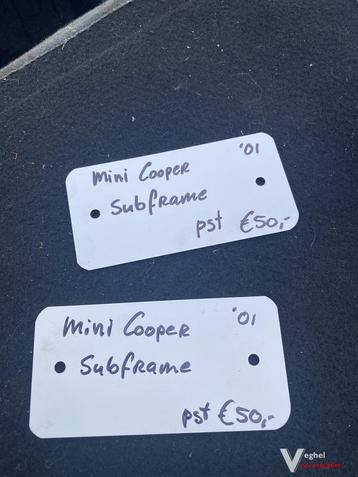 Mini Cooper '01
Subframe
pst €50,-
Mini Cooper '01
Subframe
pst €50,-
Veghel